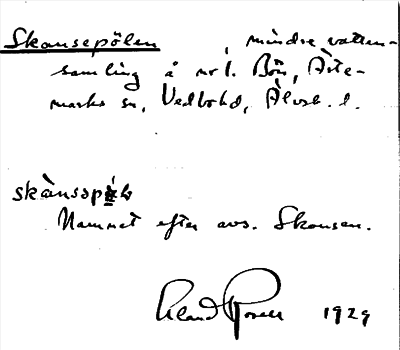 Skansepölen , mindre vatten-
samling å nr 1. Bön, Årte-
marks sn, Vedbohd, Älvsb. l.
skànsəpö̀ḷə
Namnet efter avs. Skansen.
Erland Rosell 1929